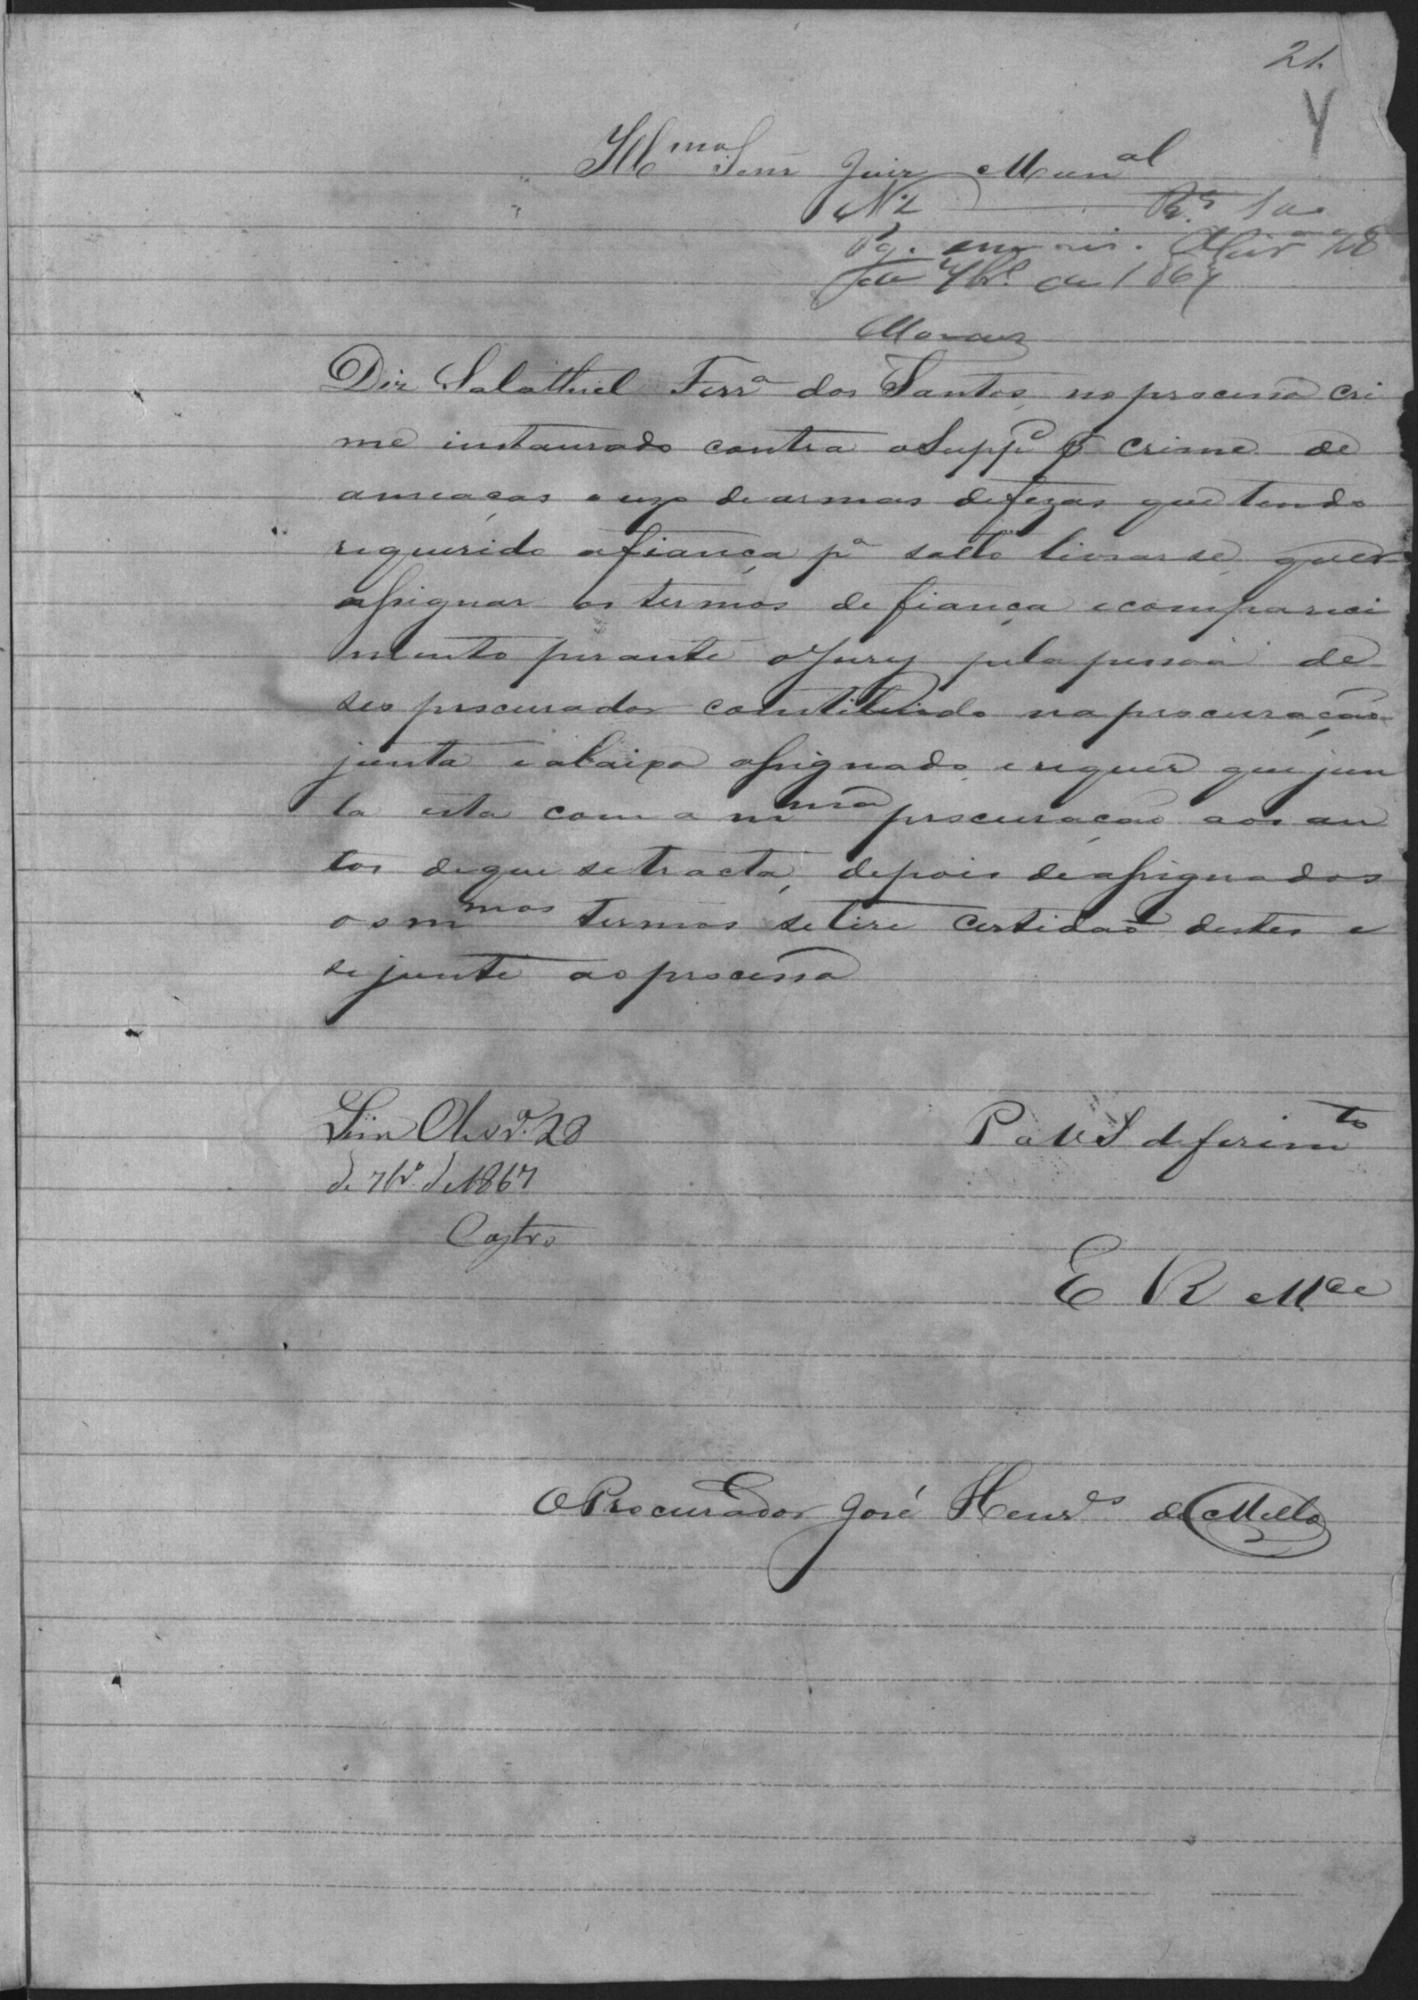 21.
Y
Ill.mo Senr Juiz Mun.al
N.2 R.s 1
Pg. Oliv.a 28
de 7br.o de 1867
Moraes
Diz Salathiel Ferr.a dos Santos, no processo cri
me instaurado contra o Supp.e p crime de
ameaças e uzo de armas defezas que tendo
requerido a fiança p.a solto livrarse, quer
assignar os termos de fiança e compareci
mento perante o Jury pela pessoa de
seo procurador constituido na procuração
junta e abaixo assignado, e requer que jun
ta esta com a m.ma procuração aos au
tos de que se tracta, depois de assignados
os m.mos termos se tire certidão destes e
se junte ao processo
Sim Oliv.a 28
de 7br.o de 1867
Castro
P a V.S deferim.to
E R M.ce
O Procurador José Henr.es de Mello